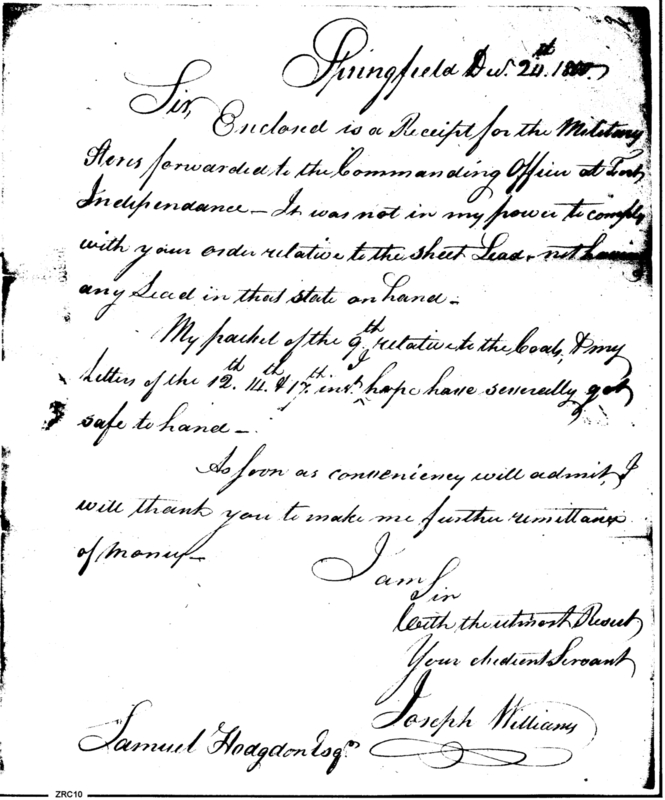 Springfield Decr. 24th. 1800
Sir,
Enclosed is a Receipt for the Military
Stores forwarded to the Commanding Officer at Fort
Independance — It was not in my power to comply
with your order relative to the sheet Lead, not having
any Lead in that state on hand —
My packet of the 9th relative to the Coats, & my
Letters of the 12th. 14th & 17th inst. I hope have severally got
safe to hand —
As soon as conveniency will admit, I
will thank you to make me further remittances
of money —
I am
Sir
With the utmost Respect
Your obedient Servant
Joseph Williams
Samuel Hodgdon Esqr.
ZRC10